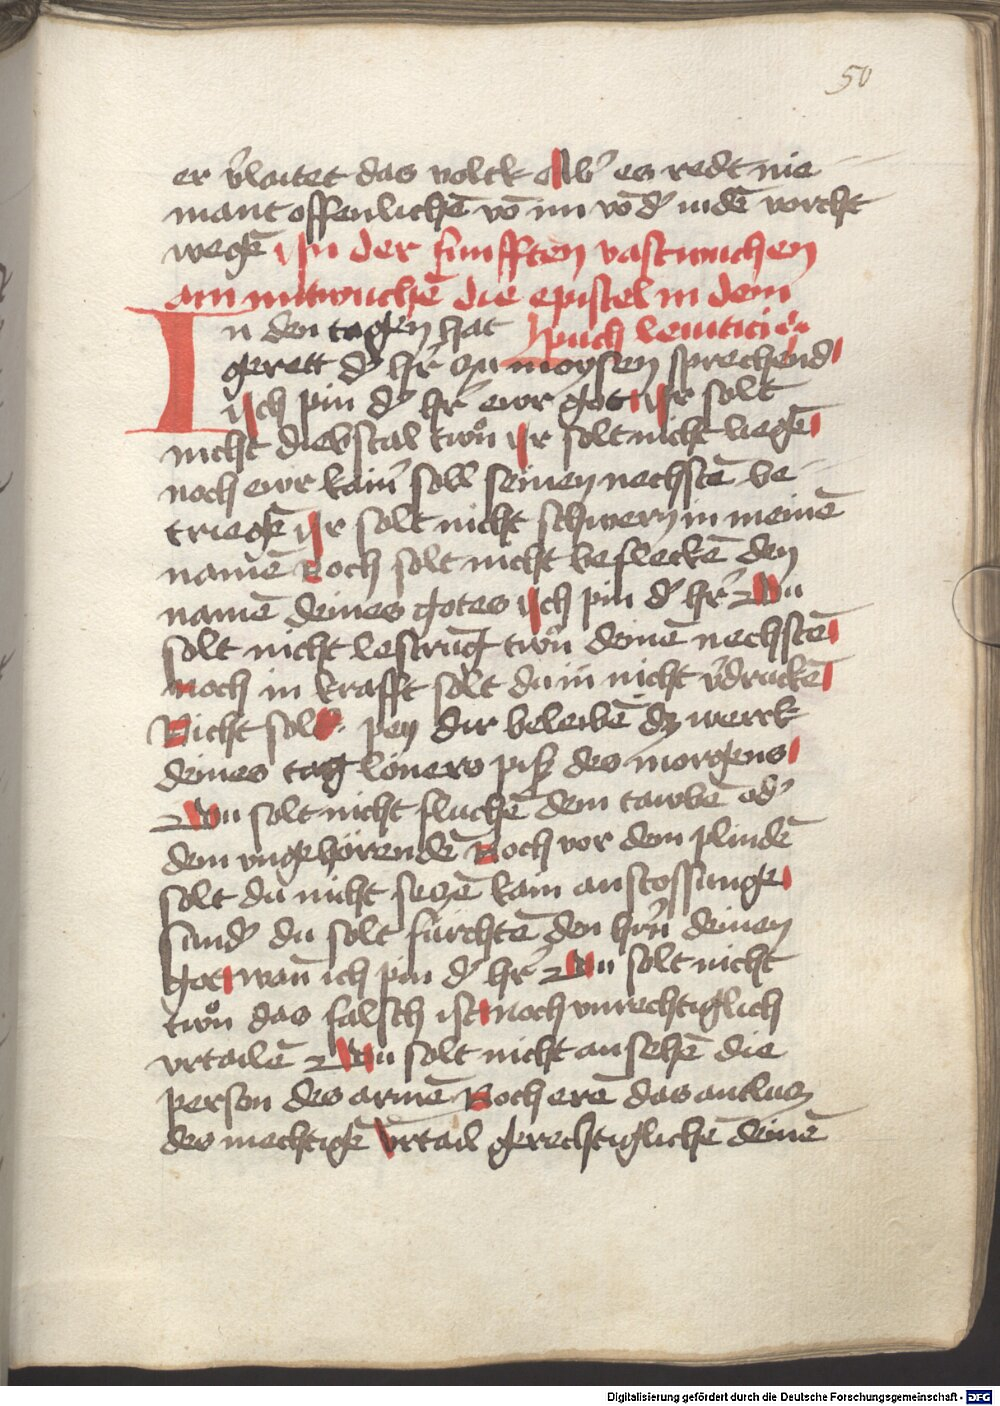 50
er v̄laitet das volck Ab̓ es redt nie
mant offenlichē vō im vō d̓ iudē vorcht
wegē In der fünfften vastwuchen
am mitwuchē die epistel in dem
puch leuitici
In den tagen hat
gerett d̓ hr̄ zu moysen sprechend
Ich pin d̓ hr̄ ewr got Ir solt
nicht diebstal twͦn Ir solt nicht liegē
noch ewr kain̓ soll seinen nechstē be
triegē Ir solt nicht schwern in meinē
namē Noch solt nicht befleckē den
namē deines gotes Ich pin d̓ hr̄ Du
solt nicht lestrūg twͦn deinē nechstē
noch in krafft solt du in nicht v̄druckē
Nicht sol pey dir beleibē dz werck
deines tag loners piß des morgens
Du solt nicht fluchē dem tawbē od̓
dem vngehörendē Noch vor dem plindē
solt du nicht seczē kain anstossunge
sund̓ du solt fürchtē den hr̄n deinen
got wan̄ ich pin d̓ hr̄ Du solt nicht
twͦn das falsch ist noch vnrechtiglich
vrtailē Du solt nicht ansehē die
person des armē Noch erē das antlucz
des mechtigē Vrtail gerechtiglichē deinē
Digitalisierung gefördert durch die Deutsche Forschungsgemeinschaft - DFG